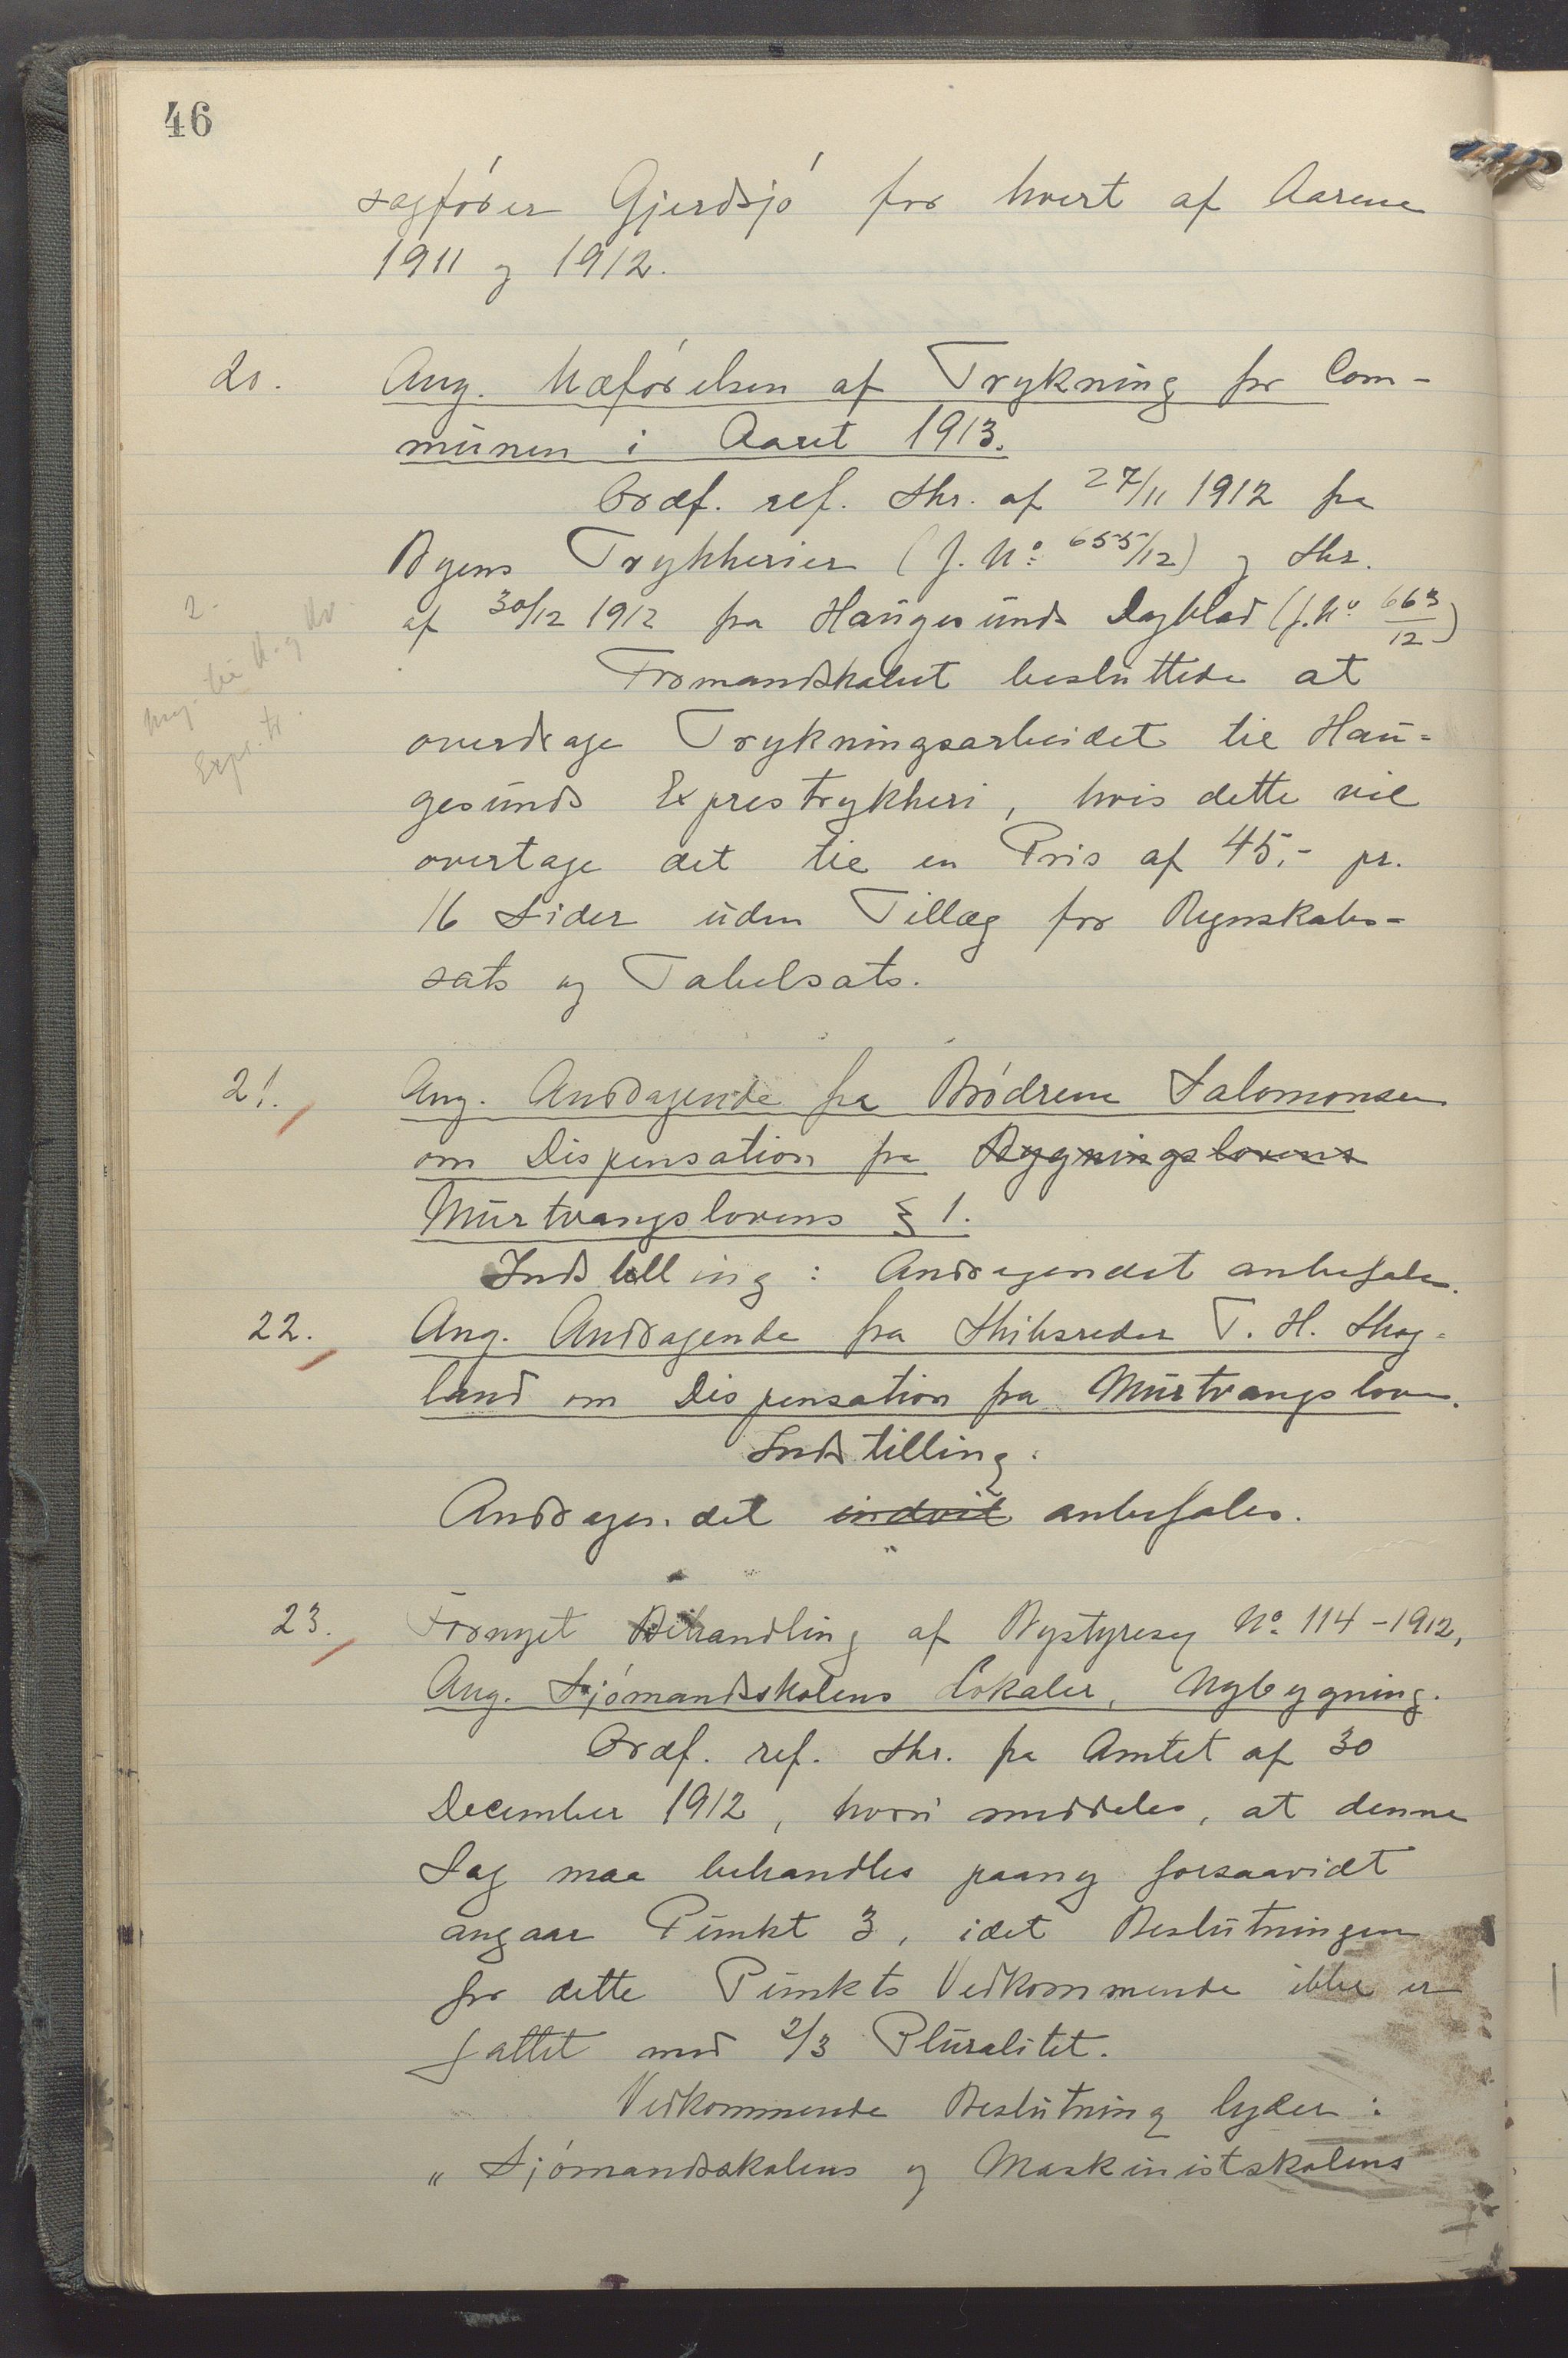 46
sagfører Gjerdsjø for hvert af Aarene
1911 og 1912.
20. Ang. Udførelsen af Trykning for Com-
munen i Aaret 1913.
Ordf. ref. Skr. af 27/11 1912 fra
Byens Trykkerier (J. No 655/12) og Skr.
af 30/12 1912 fra Haugesunds Dagblad (J. No 663/12)
Formandskabet besluttede at
overdrage Trykningsarbeidet til Hau-
gesunds Exprestrykkeri, hvis dette vil
overtage det til en Pris af 45,- pr.
16 Sider uden Tillæg for Regnskabs-
sats og Tabelsats.
21. Ang. Andragende fra Brødrene Salomonsen
om Dispensation fra Bygningslovens
Murtvangslovens § 1.
Indstilling: Andragendet anbefales.
22. Ang. Andragende fra Skibsreder T. H. Skog-
land om Dispensation fra Murtvangsloven.
Indstilling:
Andragendet indvil anbefales.
23. Fornyet Behandling af Bystyresag No 114-1912,
Ang. Sjømandsskolens Lokaler, Nybygning.
Ordf. ref. Skr. fra Amtet af 30
December 1912, hvori meddeles, at denne
Sag maa behandles paany forsaavidt
angaar Punkt 3, idet Beslutningen
for dette Punkts Vedkommende ikke er
fattet med 2/3 Pluralitet.
Vedkommende Beslutning lyder:
„Sjømandsskolens og Maskinistskolens